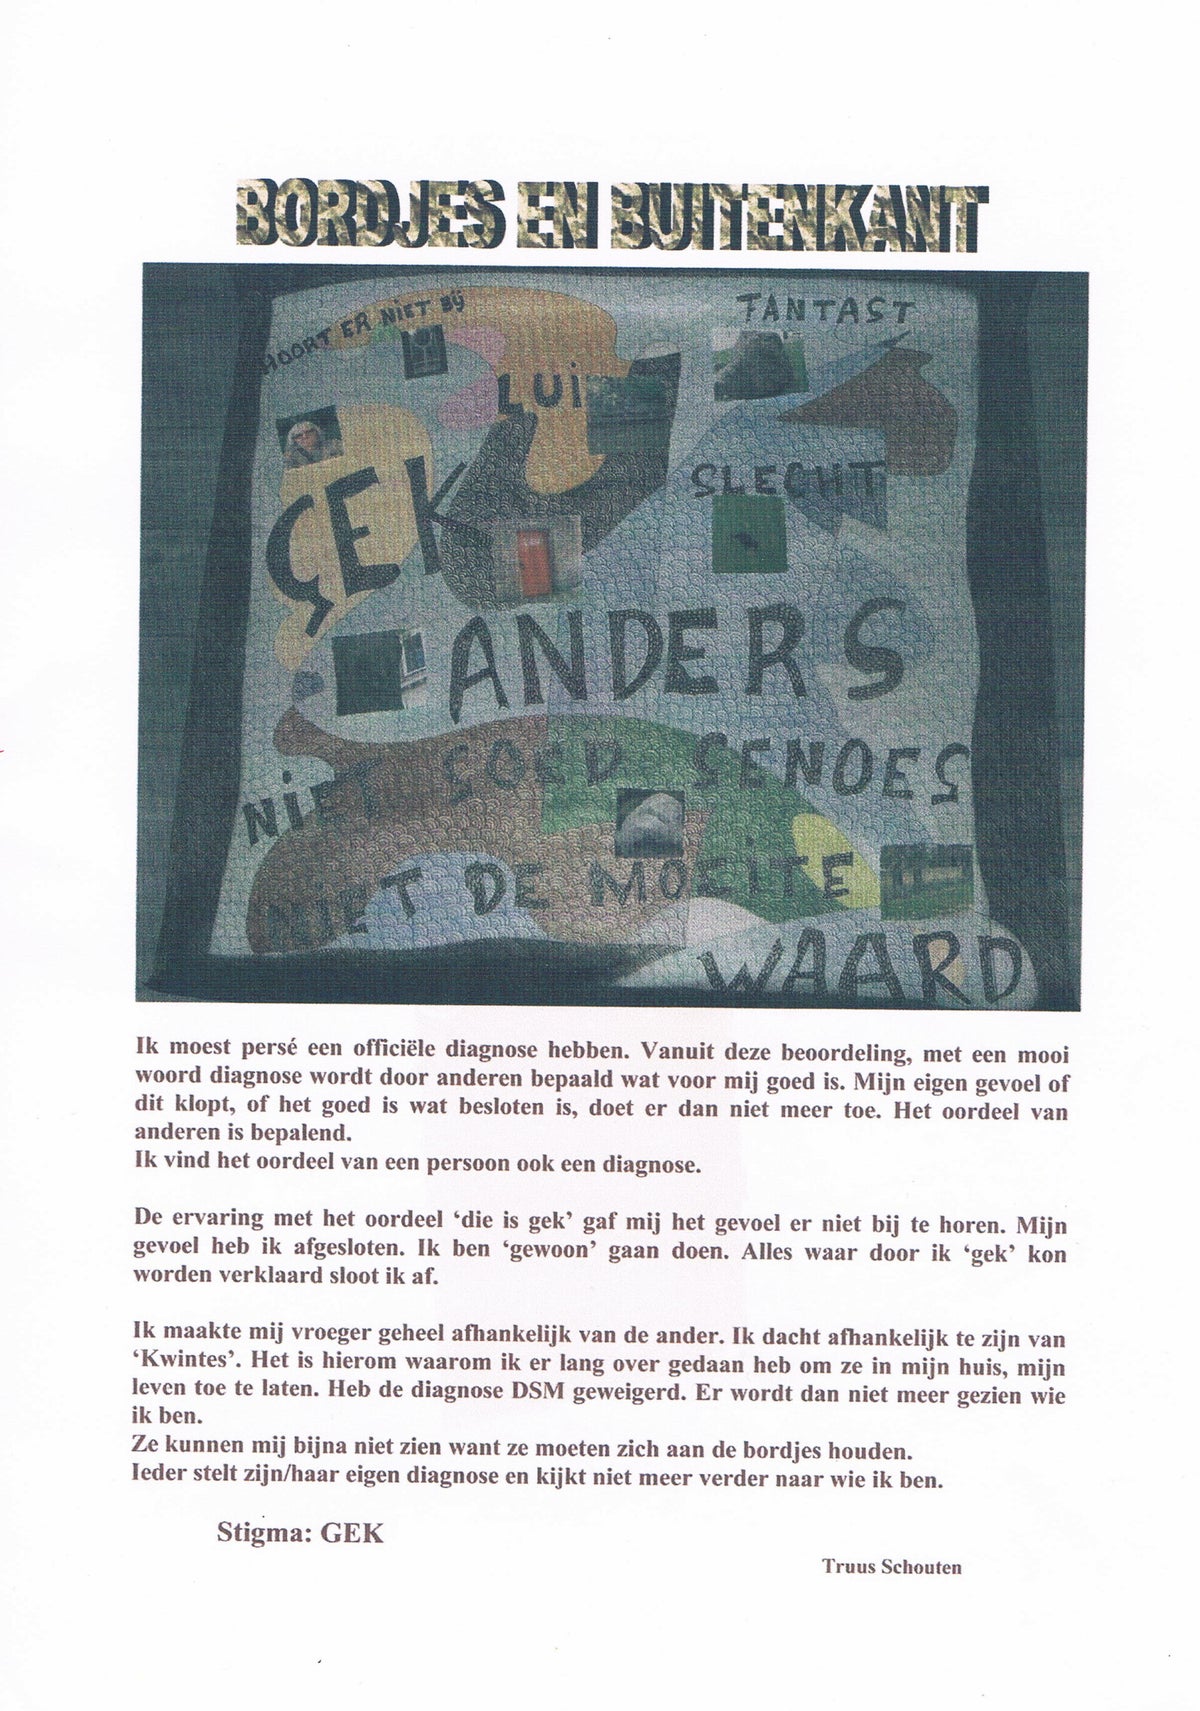 BORDJES EN BUITENKANT
HOORT ER NIET BIJ
FANTAST
LUI
GEK
SLECHT
ANDERS
NIET GOED GENOEG
NIET DE MOEITE
WAARD
Ik moest persé een officiële diagnose hebben. Vanuit deze beoordeling, met een mooi
woord diagnose wordt door anderen bepaald wat voor mij goed is. Mijn eigen gevoel of
dit klopt, of het goed is wat besloten is, doet er dan niet meer toe. Het oordeel van
anderen is bepalend.
Ik vind het oordeel van een persoon ook een diagnose.
De ervaring met het oordeel ‘die is gek’ gaf mij het gevoel er niet bij te horen. Mijn
gevoel heb ik afgesloten. Ik ben ‘gewoon’ gaan doen. Alles waar door ik ‘gek’ kon
worden verklaard sloot ik af.
Ik maakte mij vroeger geheel afhankelijk van de ander. Ik dacht afhankelijk te zijn van
‘Kwintes’. Het is hierom waarom ik er lang over gedaan heb om ze in mijn huis, mijn
leven toe te laten. Heb de diagnose DSM geweigerd. Er wordt dan niet meer gezien wie
ik ben.
Ze kunnen mij bijna niet zien want ze moeten zich aan de bordjes houden.
Ieder stelt zijn/haar eigen diagnose en kijkt niet meer verder naar wie ik ben.
Stigma: GEK
Truus Schouten